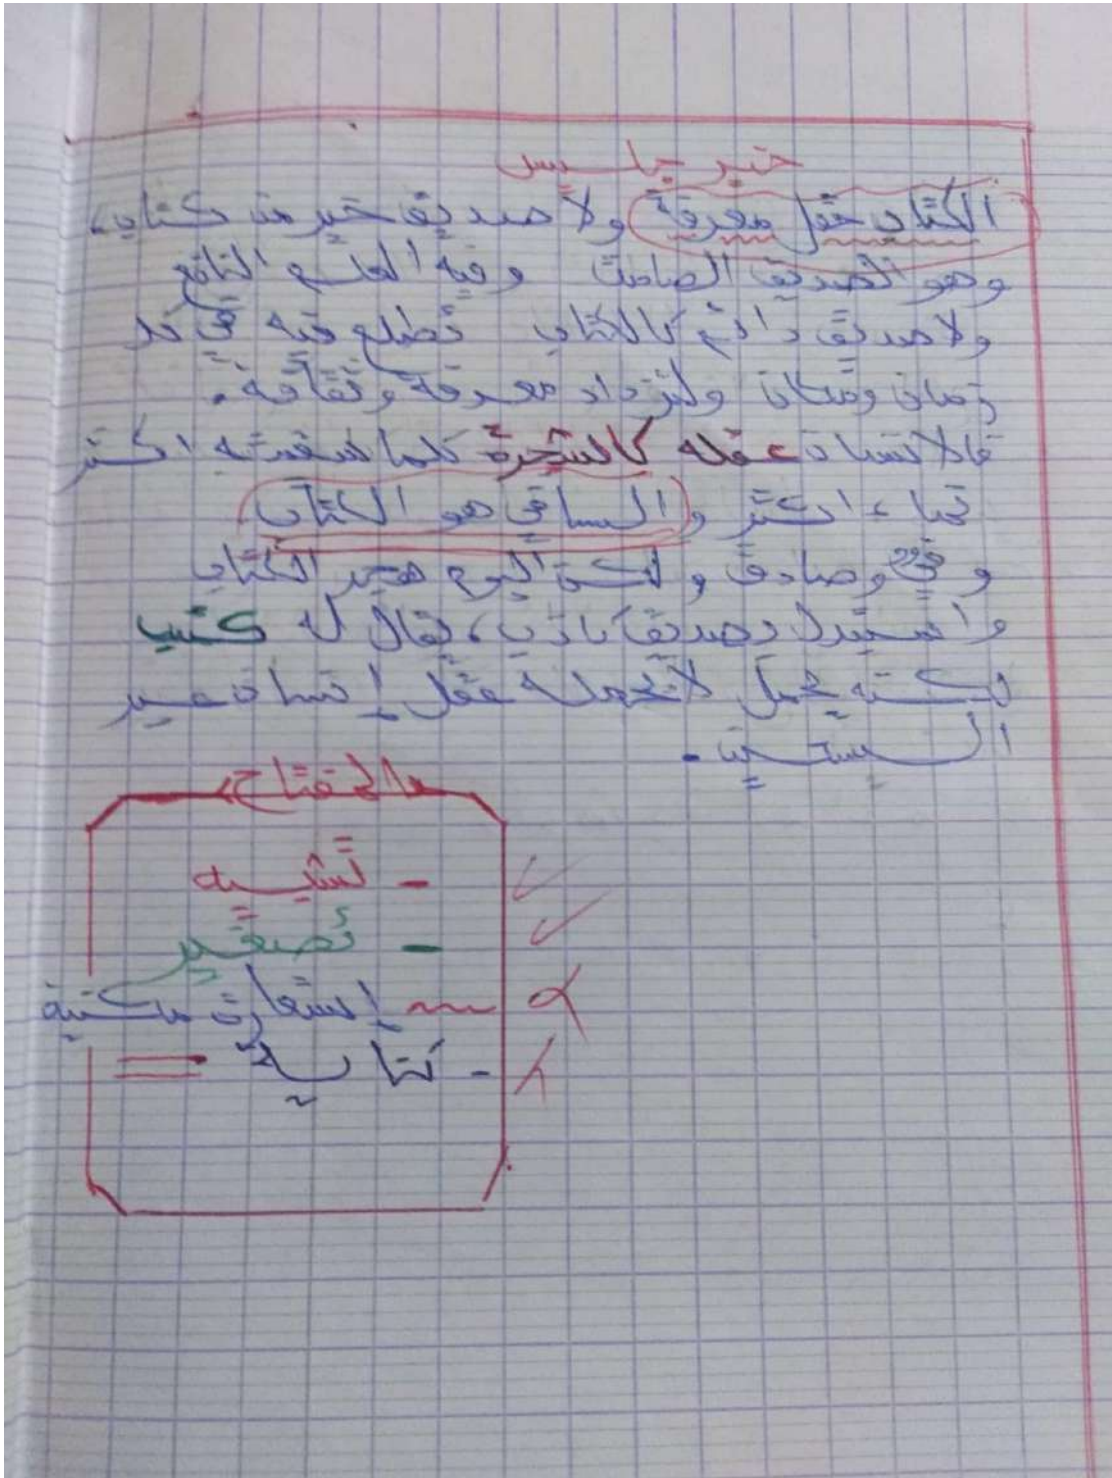 خير جليس
الكتاب حقل معرفة ولا صديق خير من كتاب،
وهو الصديق الصامت وفيه العلم النافع
ولا صديق دائم كالكتاب تطلع فيه في كل
زمان ومكان ولتزداد معرفة وثقافة.
فالانسان عقله كالشجرة كلما سقيته اكثر
نماء اكثر والساقي هو الكتاب
وفي وصادق ولكن اليوم هجر الكتاب
واستبدل بصديق كاذب، يقال له كتيب
لكنه يحمل لا يحمله عقل إنسان عبر
السنين.
المفتاح
- تشبيه
- تصغير
إستعارة مكنية
- كناية